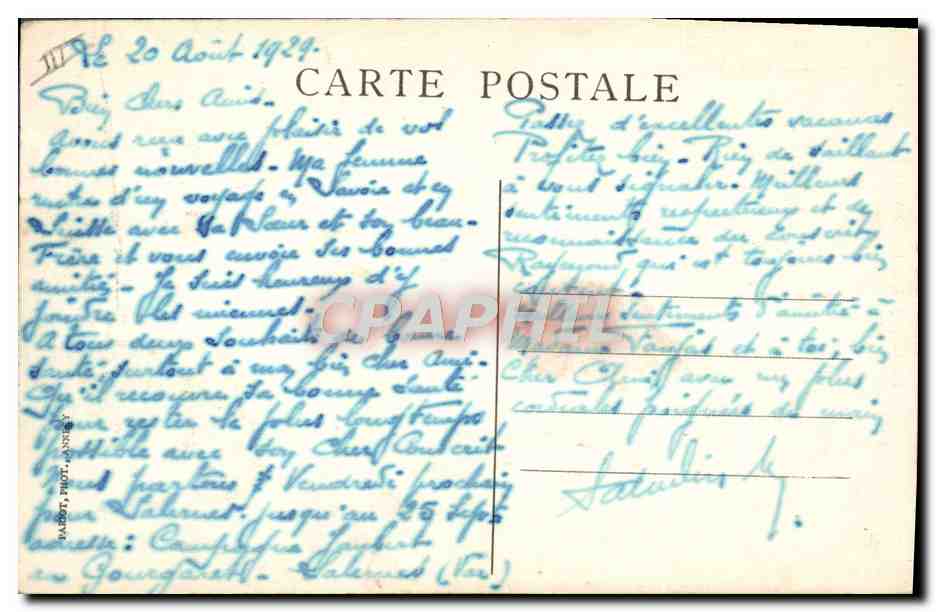 III
Le 20 Août 1929.
CARTE POSTALE
Bien chers Amis.
Avons reçu avec plaisir de vos
bonnes nouvelles. Ma femme
rentre d'un voyage en Savoie et en
Suisse avec sa Sœur et son beau-
Frère et vous envoie ses bonnes
amitiés. Je suis heureux d'y
joindre les miennes.
A tous deux souhaits de bonne
santé, surtout à mon bien cher Ami.
Qu'il recouvre sa bonne santé
pour rester le plus longtemps
possible avec son cher Conscrit
nous partons Vendredi prochain
pour Salernes. jusqu'au 25 Sept
adresse: Campagne Joubert
en Gourgaret. Salernes (Var)
Passez d'excellentes vacances
Profitez bien. Rien de saillant
à vous signaler. Meilleurs
sentiments respectueux et de
reconnaissance du Conscrit
Raymond, qui est toujours bien
sentiments d'amitié à
et à toi, bien
cher avec mes plus
cordiales poignées de main
PARIOT, PHOT., ANNECY
CPAPHIL